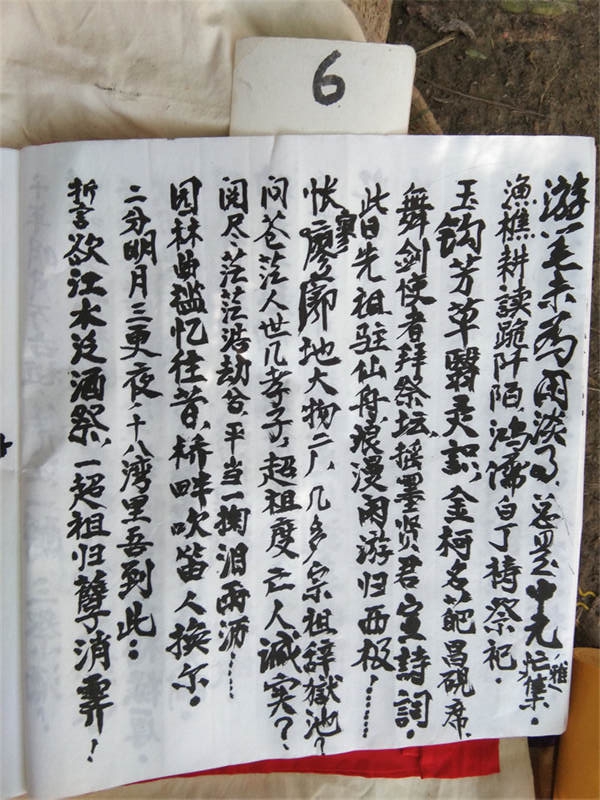 6
游 未为闲淡 总是中元忙雅集.
渔樵耕读跪阡陌,鸿儒白丁祷祭祀.
玉钩芳草翳灵识,金柯名葩昌砚席.
舞剑使者拜祭坛,摇墨贤君宣詩詞.
此日先祖驻仙舟,浪漫闲游归西极!……
怅寥廓地大物广,几多宗祖辞獄池?
问苍茫人世几孝子,超祖度亡人诚实?
阅尽茫茫浩劫兮,平当一掬泪雨沥!……
园林曲槛忆往昔,桥畔吹笛人换尔.
二分明月三更夜,十八湾里吾到此.
誓欲江水泛酒祭,一超祖归孽消霁!